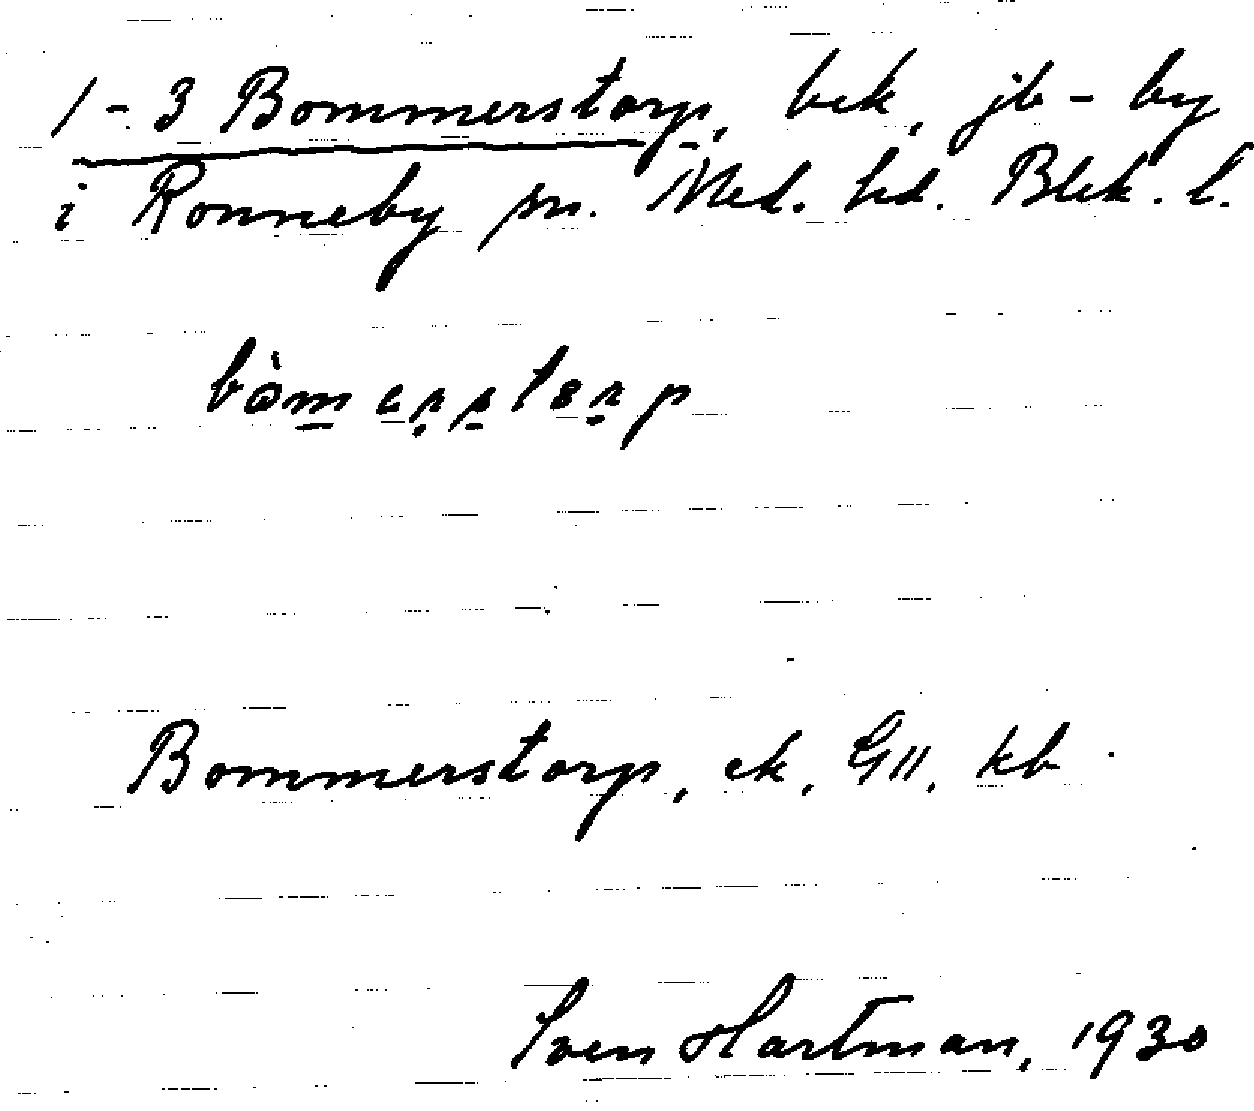 1-3 Bommerstorp, bek, jb-by
i Ronneby sn. Med. hd. Blek. l.
Bommerstorp, ek, GII, kb.
Sven Hartman, 1930